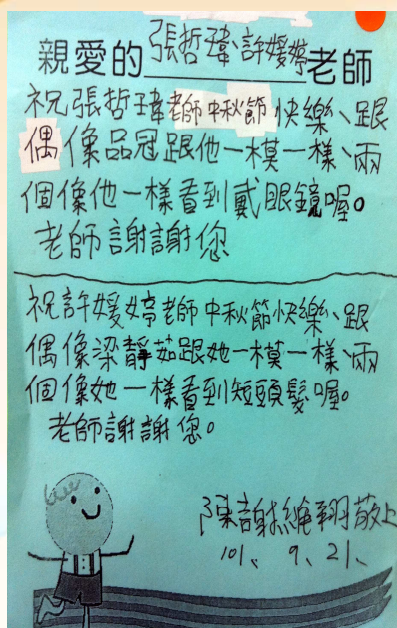 親愛的張哲瑋、許媛婷老師
祝張哲瑋老師中秋節快樂、跟
偶像品冠跟他一模一樣、兩
個像他一樣看到戴眼鏡喔。
老師謝謝您
祝許媛婷老師中秋節快樂、跟
偶像梁靜茹跟她一模一樣、兩
個像她一樣看到短頭髮喔。
老師謝謝您。
陳謝維翔敬上
101、9、21、